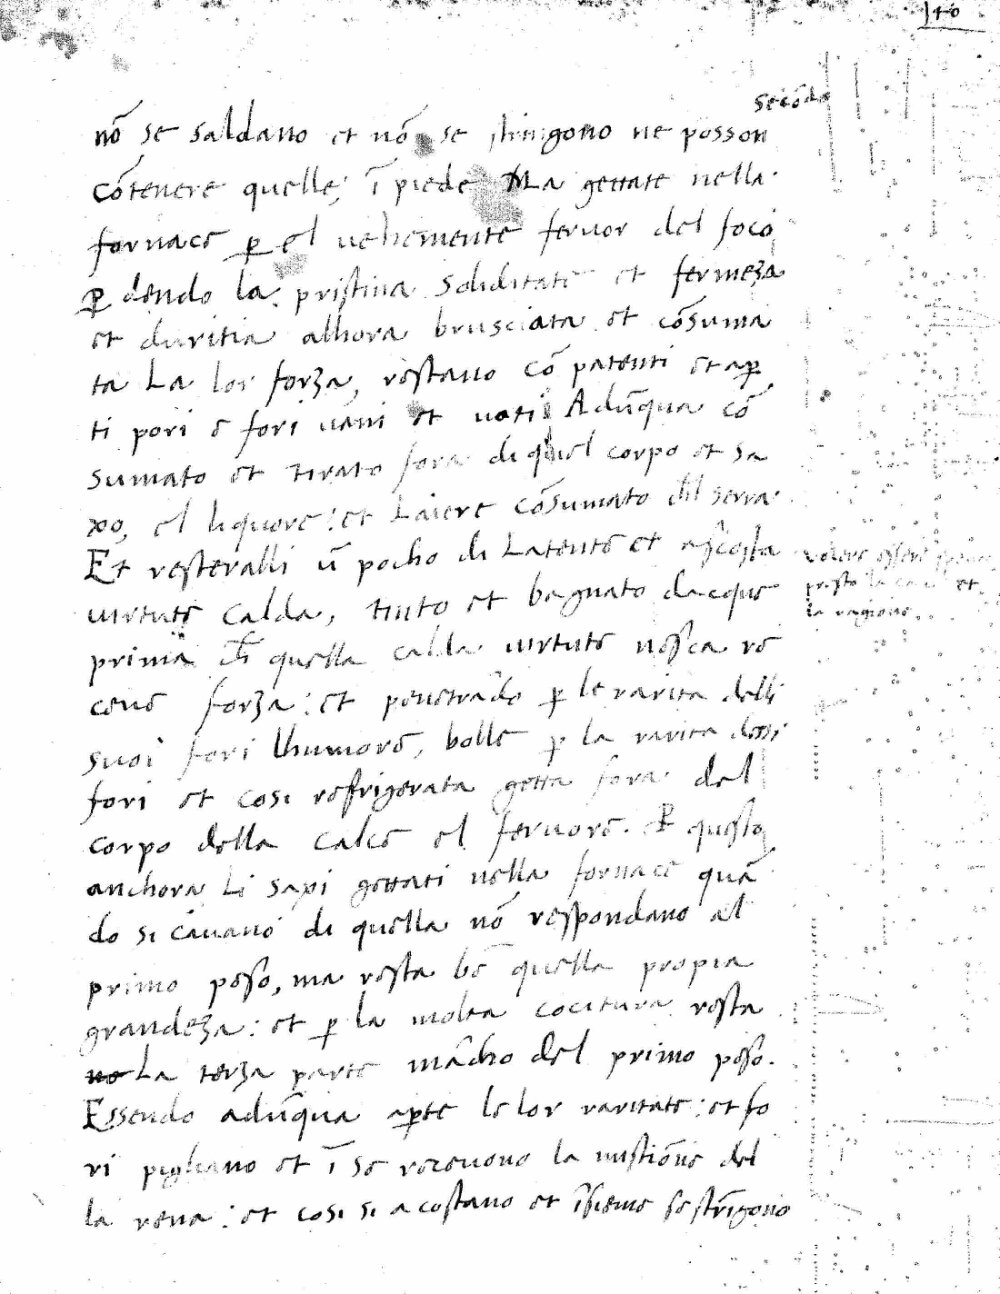 140
secōdo
nō se saldano et nō se stringono ne posson
cōtenere quelle; ī piede Ma gettate nella
fornace ꝑ el vehemente fervor del foco
ꝑdendo la pristina soliditate et fermeza
et duritia alhora brusciata et cōsuma
ta La lor forza, restano cō patenti et aꝑ
ti pori e fori vani et voti Adūqua cō
sumato et tirato fora di quel corpo et sa
xo, el liquore: et Laiere cōsumato
Et resteralli ū pocho di Latente et ascosta
virtute calda, tinto et bagnato dacque
prima ch quella calda virtute nesca re
ceve forza: et penetrādo ꝑ le rarita delli
suoi fori lhumore, bolle ꝑ la rarita dessi
fori et cosi refrigerata getta fora del
corpo della calce el fervore. Et ꝑ questo
anchora Li saxi gettati nella fornace quā
do si cavano di quella nō respondano al
primo peso, ma resta bē quella propia
grandeza: et ꝑ la molta cocitura resta
La terza parte mācho del primo peso.
Essendo adūqua aꝑte le lor raritate: et fo
ri pigliano et ī se recevono la mistione del
la rena: et cosi si acostano et īsieme se strīgono
volere essere
presto la et
la ragione